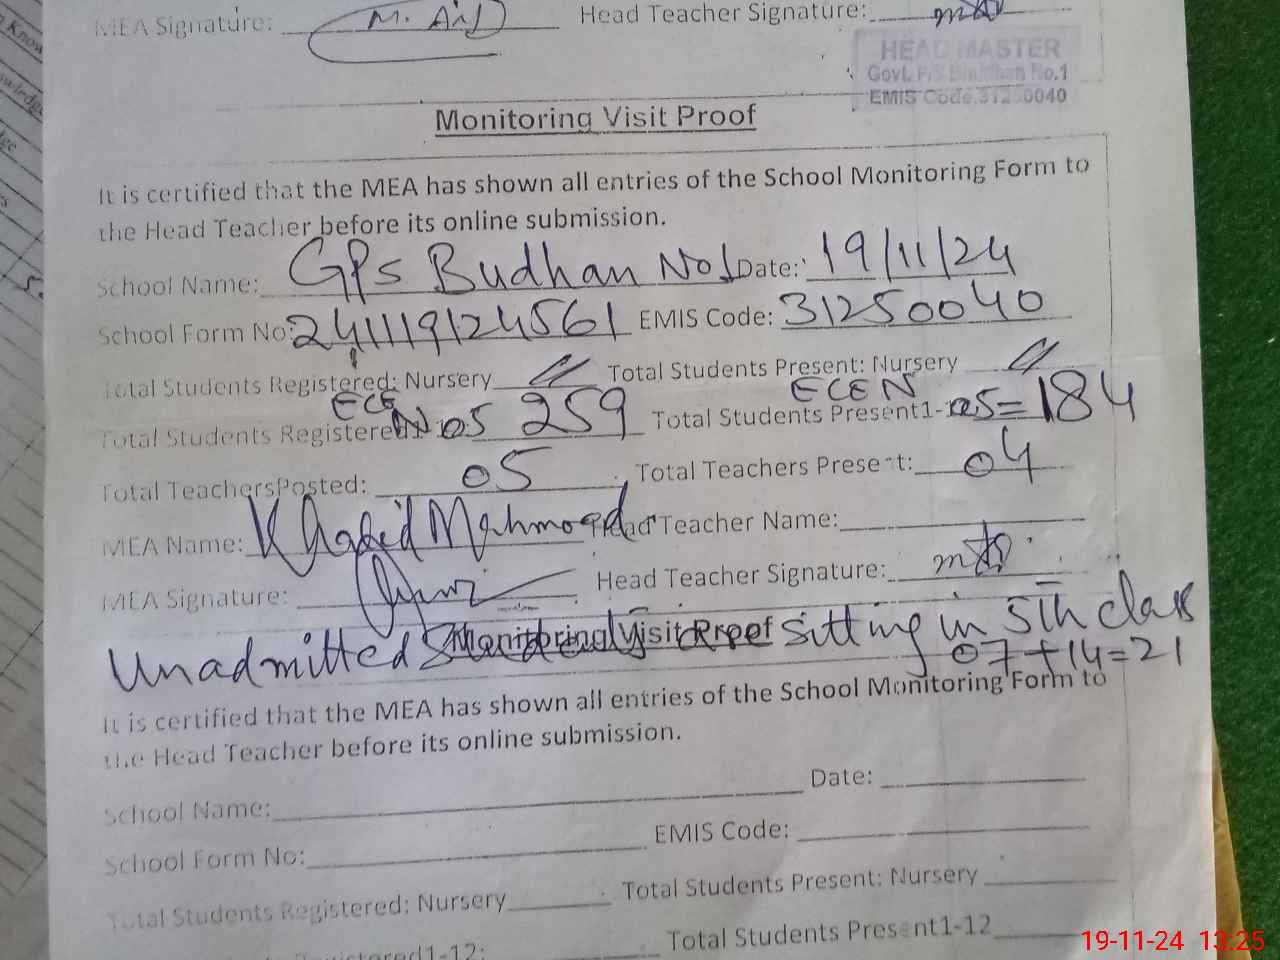 MEA Signature: M. Arif Head Teacher Signature:
HEAD MASTER
Govt. P/S Budhan No.1
EMIS Code.31250040
Monitoring Visit Proof
It is certified that the MEA has shown all entries of the School Monitoring Form to
the Head Teacher before its online submission.
School Name: GPs Budhan No1 Date: 19/11/24
School Form No: 241119124561 EMIS Code: 31250040
Total Students Registered: Nursery Total Students Present: Nursery
ECE ECE N
Total Students Registered N 05 259 Total Students Present1- 05=184
Total TeachersPosted: 05 Total Teachers Present: 04
MEA Name: Khalid Mahmood Head Teacher Name:
MEA Signature: Head Teacher Signature:
Monitoring Visit Proof
Unadmitted sitting in 5th class
07+14=21
It is certified that the MEA has shown all entries of the School Monitoring Form to
the Head Teacher before its online submission.
School Name: Date:
School Form No: EMIS Code:
Total Students Registered: Nursery Total Students Present: Nursery
Registered1-12: Total Students Present1-12
19-11-24 13:25